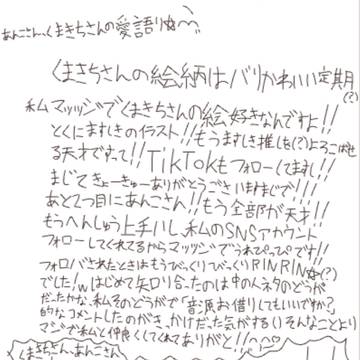 あんこさん、くまきちさんの愛語り☆
くまきちさんの絵柄はバリかわいい定期(?)
私マッッジでくまきちさんの絵好きなんですよ!!
とくにますしきのイラスト!!もうますしき推しを(?)よろこばせ
る天才ですって!!TikTokもフォローしてます!!
まじできょーきゅーありがとうございますまじで!!!
あと2つ目にあんこさん!!もう全部が天才!!
もうへんしゅう上手いし、私のSNSアカウント
フォローしてくれてるからマッッジでうれぴっぴです!!
フォロバされたときはもうびっくりびっくりRINRIN☆(?)
でした!wはじめて知り合ったのは中の人ネタのどうが
だったかな、私そのどうがで「音源お借りしてもいいですか?」
的なコメントしたのがきっかけだった気がする()そんなことより
マジで私と仲良くしてくれてありがと!!
くまきちさん、あんこさん